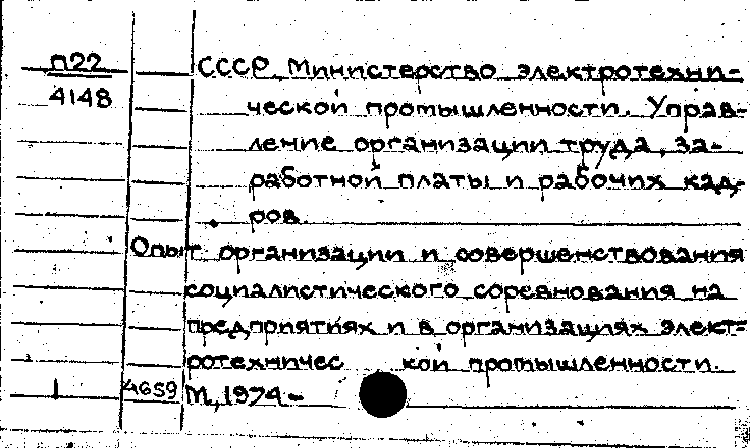 П22 СССР. Министерство электротехни-
4148 ческой промышленности. Управ-
ление организации труда, за-
работной платы и рабочих кад-
ров.
Опыт организации и совершенствования
социалистического соревнования на
предприятиях и в организациях элект-
ротехничес кой промышленности.
1 4659 М., 1974-